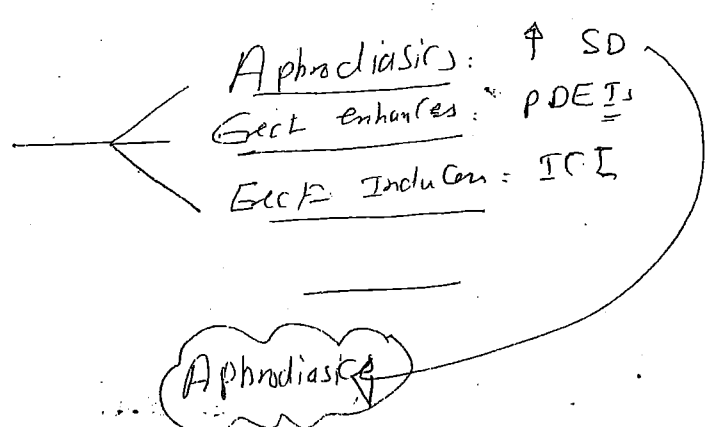 Aphrodiasics: ↑ SD
Erect enhances: PDE Is
Erect Inducers: ICI
Aphrodiasics